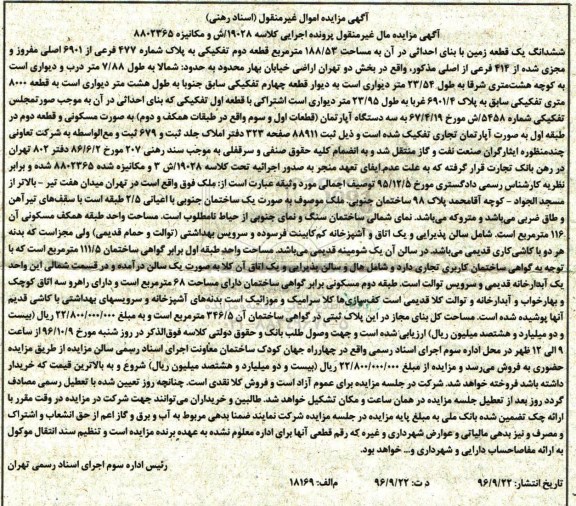 آگهی مزایده اموال غیرمنقول (اسناد رهنی)
آگهی مزایده مال غیرمنقول پرونده اجرایی کلاسه ۱۹۰۲۸/ش و مکانیزه ۸۸۰۲۳۶۵
ششدانگ یک قطعه زمین با بنای احداثی در آن به مساحت ۱۸۸/۵۳ مترمربع قطعه دوم تفکیکی به پلاک شماره ۴۷۷ فرعی از ۶۹۰۱ اصلی مفروز و
مجزی شده از ۴۱۴ فرعی از اصلی مذکور، واقع در بخش دو تهران اراضی خیابان بهار محدود به حدود: شمالا به طول ۷/۸۸ متر درب و دیواری است
به کوچه هشت‌متری شرقا به طول ۲۳/۵۴ متر دیواری است به دیوار قطعه چهارم تفکیکی سابق جنوبا به طول هشت متر دیواری است به قطعه ۸۰۰۰
متری تفکیکی سابق به پلاک ۶۹۰۱/۴ غربا به طول ۲۳/۹۵ متر دیواری است اشتراکی با قطعه اول تفکیکی که بنای احداثی در آن به موجب صورتمجلس
شماره ۵۴۵۸/ش مورخ ۶۷/۴/۱۹ به سه دستگاه آپارتمان (قطعات اول و سوم واقع در طبقات همکف و دوم) به صورت مسکونی و قطعه دوم در
طبقه اول به صورت آپارتمان تجاری تفکیک شده است و ذیل ثبت ۸۸۹۱۱ صفحه ۳۲۳ دفتر املاک جلد ثبت و ۶۷۹ ثبت و مع‌الواسطه به شرکت تعاونی
چندمنظوره ایثارگران صنعت نفت و گاز منتقل شد و به انضمام کلیه حقوق صنفی و سرقفلی به موجب سند رهنی ۲۰۷ مورخ ۸۶/۶/۲ دفتر ۸۰۲ تهران
در رهن بانک تجارت قرار گرفته که به علت عدم ایفای تعهد منجر به صدور اجرائیه تحت کلاسه ۱۹۰۲۸/ش ۳ و مکانیزه شده ۸۸۰۲۳۶۵ شده و برابر
نظریه کارشناس رسمی دادگستری مورخ ۹۵/۱۲/۵ توصیف اجمالی مورد وثیقه عبارت است از: ملک فوق واقع است در تهران میدان هفت تیر - بالاتر از
مسجد الجواد - کوچه آقامحمد پلاک ۹۸ ساختمان جنوبی. ملک موصوف به صورت یک ساختمان جنوبی با اعیانی ۲/۵ طبقه است با سقف‌های تیرآهن
و طاق ضربی می‌باشد و متروکه می‌باشد. نمای شمالی ساختمان سنگ و نمای جنوبی از حیاط نامطلوب است. مساحت واحد طبقه همکف مسکونی آن
۱۱۶ مترمربع است. شامل سالن پذیرایی و یک اتاق و آشپزخانه کم‌کابینت فرسوده و سرویس بهداشتی (توالت و حمام قدیمی) ولی مجزاست که بدنه
هر دو با کاشی‌کاری قدیمی می‌باشد. در سالن آن یک شومینه قدیمی می‌باشد. مساحت واحد طبقه اول برابر گواهی ساختمان ۱۱۱/۵ مترمربع است که با
توجه به گواهی ساختمان کاربری تجاری دارد و شامل هال و سالن پذیرایی و یک اتاق آن کلا به صورت یک سالن درآمده و در قسمت شمالی این واحد
یک آبدارخانه قدیمی و سرویس توالت است. طبقه دوم مسکونی برابر گواهی ساختمان دارای مساحت ۶۸ مترمربع است و دارای راهرو سه اتاق کوچک
و بهارخواب و آبدارخانه و توالت کلا قدیمی است کف‌سازی‌ها کلا سرامیک و موزائیک است بدنه‌های آشپزخانه و سرویسهای بهداشتی با کاشی قدیم
آنها پوشیده شده است. مساحت کل بنای مجاز در این پلاک ثبتی در گواهی ساختمان آن ۳۴۶/۵ مترمربع است و به مبلغ ۲۲/۸۰۰/۰۰۰/۰۰۰ ریال (بیست
و دو میلیارد و هشتصد میلیون ریال) ارزیابی شده است و جهت وصول طلب بانک و حقوق دولتی کلاسه فوق‌الذکر در روز شنبه مورخ ۹۶/۱۰/۹ از ساعت
۹ الی ۱۲ ظهر در محل اداره سوم اجرای اسناد رسمی واقع در چهارراه جهان کودک ساختمان معاونت اجرای اسناد رسمی سالن مزایده از طریق مزایده
حضوری به فروش می‌رسد و مزایده از مبلغ ۲۲/۸۰۰/۰۰۰/۰۰۰ ریال (بیست و دو میلیارد و هشتصد میلیون ریال) شروع و به بالاترین قیمت که خریدار
داشته باشد فروخته خواهد شد. شرکت در جلسه مزایده برای عموم آزاد است و فروش کلا نقدی است. چنانچه روز تعیین شده با تعطیل رسمی مصادف
گردد روز بعد از تعطیل جلسه مزایده در همان ساعت و مکان تشکیل خواهد شد. طالبین و خریداران می‌توانند جهت شرکت در مزایده در وقت مقرر با
ارائه چک تضمین شده بانک ملی به مبلغ پایه مزایده در جلسه مزایده شرکت نمایند ضمنا بدهی مربوط به آب و برق و گاز اعم از حق انشعاب و اشتراک
و مصرف و نیز بدهی مالیاتی و عوارض شهرداری و غیره که رقم قطعی آنها برای اداره معلوم نشده به عهده برنده مزایده است و تنظیم سند انتقال موکول
به ارائه مفاصاحساب دارایی و شهرداری و... خواهد بود.
رئیس اداره سوم اجرای اسناد رسمی تهران
تاریخ انتشار: ۹۶/۹/۲۲ د ت: ۹۶/۹/۲۲ م‌الف: ۱۸۱۶۹